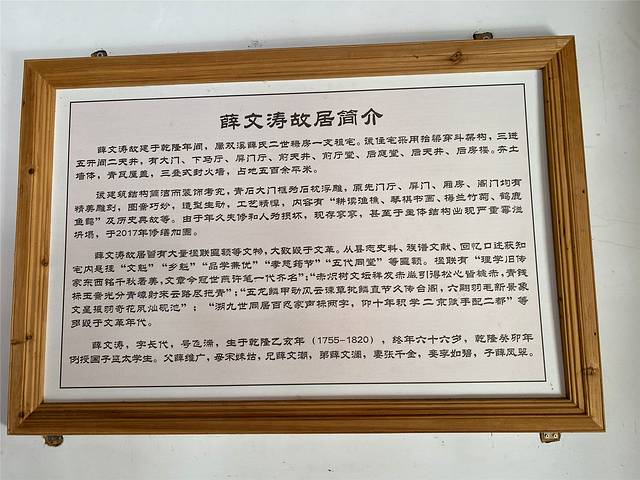 薛文涛故居简介
薛文涛故建于乾隆年间，属双溪薛氏二世锡房一支祖宅。该住宅采用抬梁穿斗架构，三进
五开间二天井，有大门、下马厅、屏门厅、前天井、前厅堂、后庭堂、后天井、后房楼。夯土
墙体，青瓦屋盖，三叠式封火墙，占地五百余平米。
该建筑结构简洁而装饰考究，青石大门框为石枕浮雕，原先门厅、屏门、厢房、阁门均有
精美雕刻，图案巧妙，造型生动，工艺精悍，内容有“耕读渔樵、琴棋书画、梅兰竹菊、鹤鹿
鱼鹊”及历史典故等。由于年久失修和人为损坏，现存寥寥，甚至于主体结构出现严重雾溢
坍塌，于2017年修缮加固。
薛文涛故居留有大量楹联匾额等文物，大致毁于文革。从县志史料、族谱文献、回忆口述获知
宅内悬挂“文魁”“乡魁”“品学兼优”“孝慈筠节”“五代同堂”等匾额。楹联有“理学旧传
家东西铭千秋著美，文章今冠世燕许笔一代齐名”；“赤炽树文坛祥发
引得松心皆械赤，青钱
标玉嵛光分青嶂射来云路尽把青”；“五龙鳞甲动风云谏草批鳞直节久传台阁，六翮羽毛新景象
文星振羽奇花夙灿砚池”； “溯九世同居百忍家声标两字，仰十年积学二京赋手配二都”等
那毁于文革年代。
薛文涛，字长代，号飞澜，生于乾隆乙亥年（1755-1820），终年六十六岁，乾隆癸卯年
例授国子监太学生。父薛维广，母宋妹姑，兄薛文潮，弟薛文澜，妻张千金，妾李如碧，子薛凤翠。